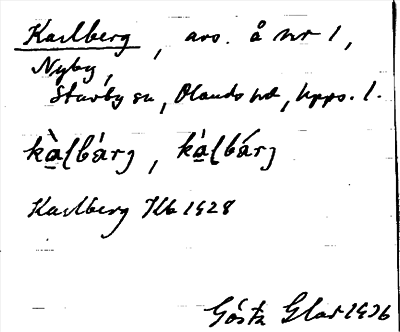 Karlberg, avs. å nr 1,
Nyby,
Stavby sn, Olands hd, Upps. l.
kàlbárj, kálbárj
Karlberg Jb 1928
Gösta 1936